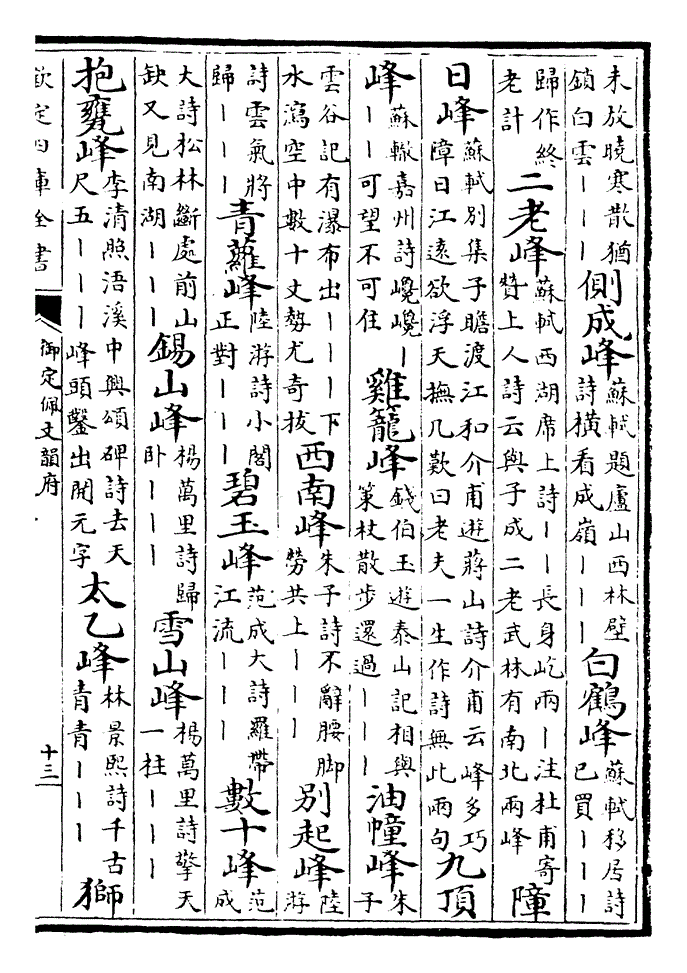 未放曉寒散猶
鎖白雲丨丨丨
側成峰
蘇軾題廬山西林壁
詩橫看成嶺丨丨丨
白鶴峰
蘇軾移居詩
已買丨丨丨
歸作終
老計
二老峰
蘇軾西湖席上詩丨丨長身屹兩丨注杜甫寄
贊上人詩云與子成二老武林有南北兩峰
障
日峰
蘇軾別集子瞻渡江和介甫遊蔣山詩介甫云峰多巧
障日江遠欲浮天撫几歎曰老夫一生作詩無此兩句
九頂
峰
蘇轍嘉州詩巉巉丨
丨丨可望不可住
雞籠峰
錢伯玉遊泰山記相與
策杖散步還過丨丨丨
油幢峰
朱
子
雲谷記有瀑布出丨丨丨下
水瀉空中數十丈勢尤奇拔
西南峰
朱子詩不辭腰脚
勞共上丨丨丨
別起峰
陸
游
詩雲氣將
歸丨丨丨
青蘿峰
陸游詩小閣
正對丨丨丨
碧玉峰
范成大詩羅帶
江流丨丨丨
數十峰
范
成
大詩松林斷處前山
缺又見南湖丨丨丨
錫山峰
楊萬里詩歸
卧丨丨丨
雪山峰
楊萬里詩擎天
一柱丨丨丨
抱甕峰
李清照浯溪中興頌碑詩去天
尺五丨丨丨峰頭鑿出開元字
太乙峰
林景熙詩千古
青青丨丨丨
獅
欽定四庫全書
御定佩文韻府
十三